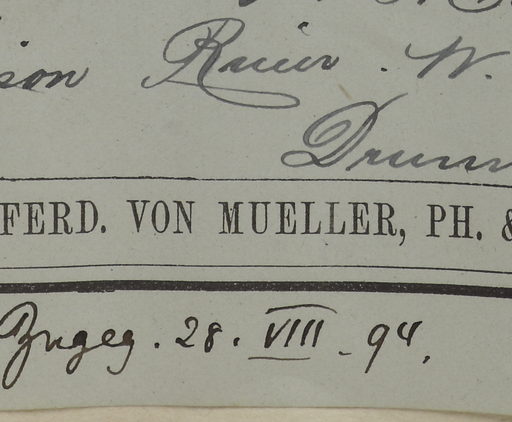 son River. W.
Drumm
FERD. VON MUELLER, PH. &
Zugeg. 28. VIII. 94.